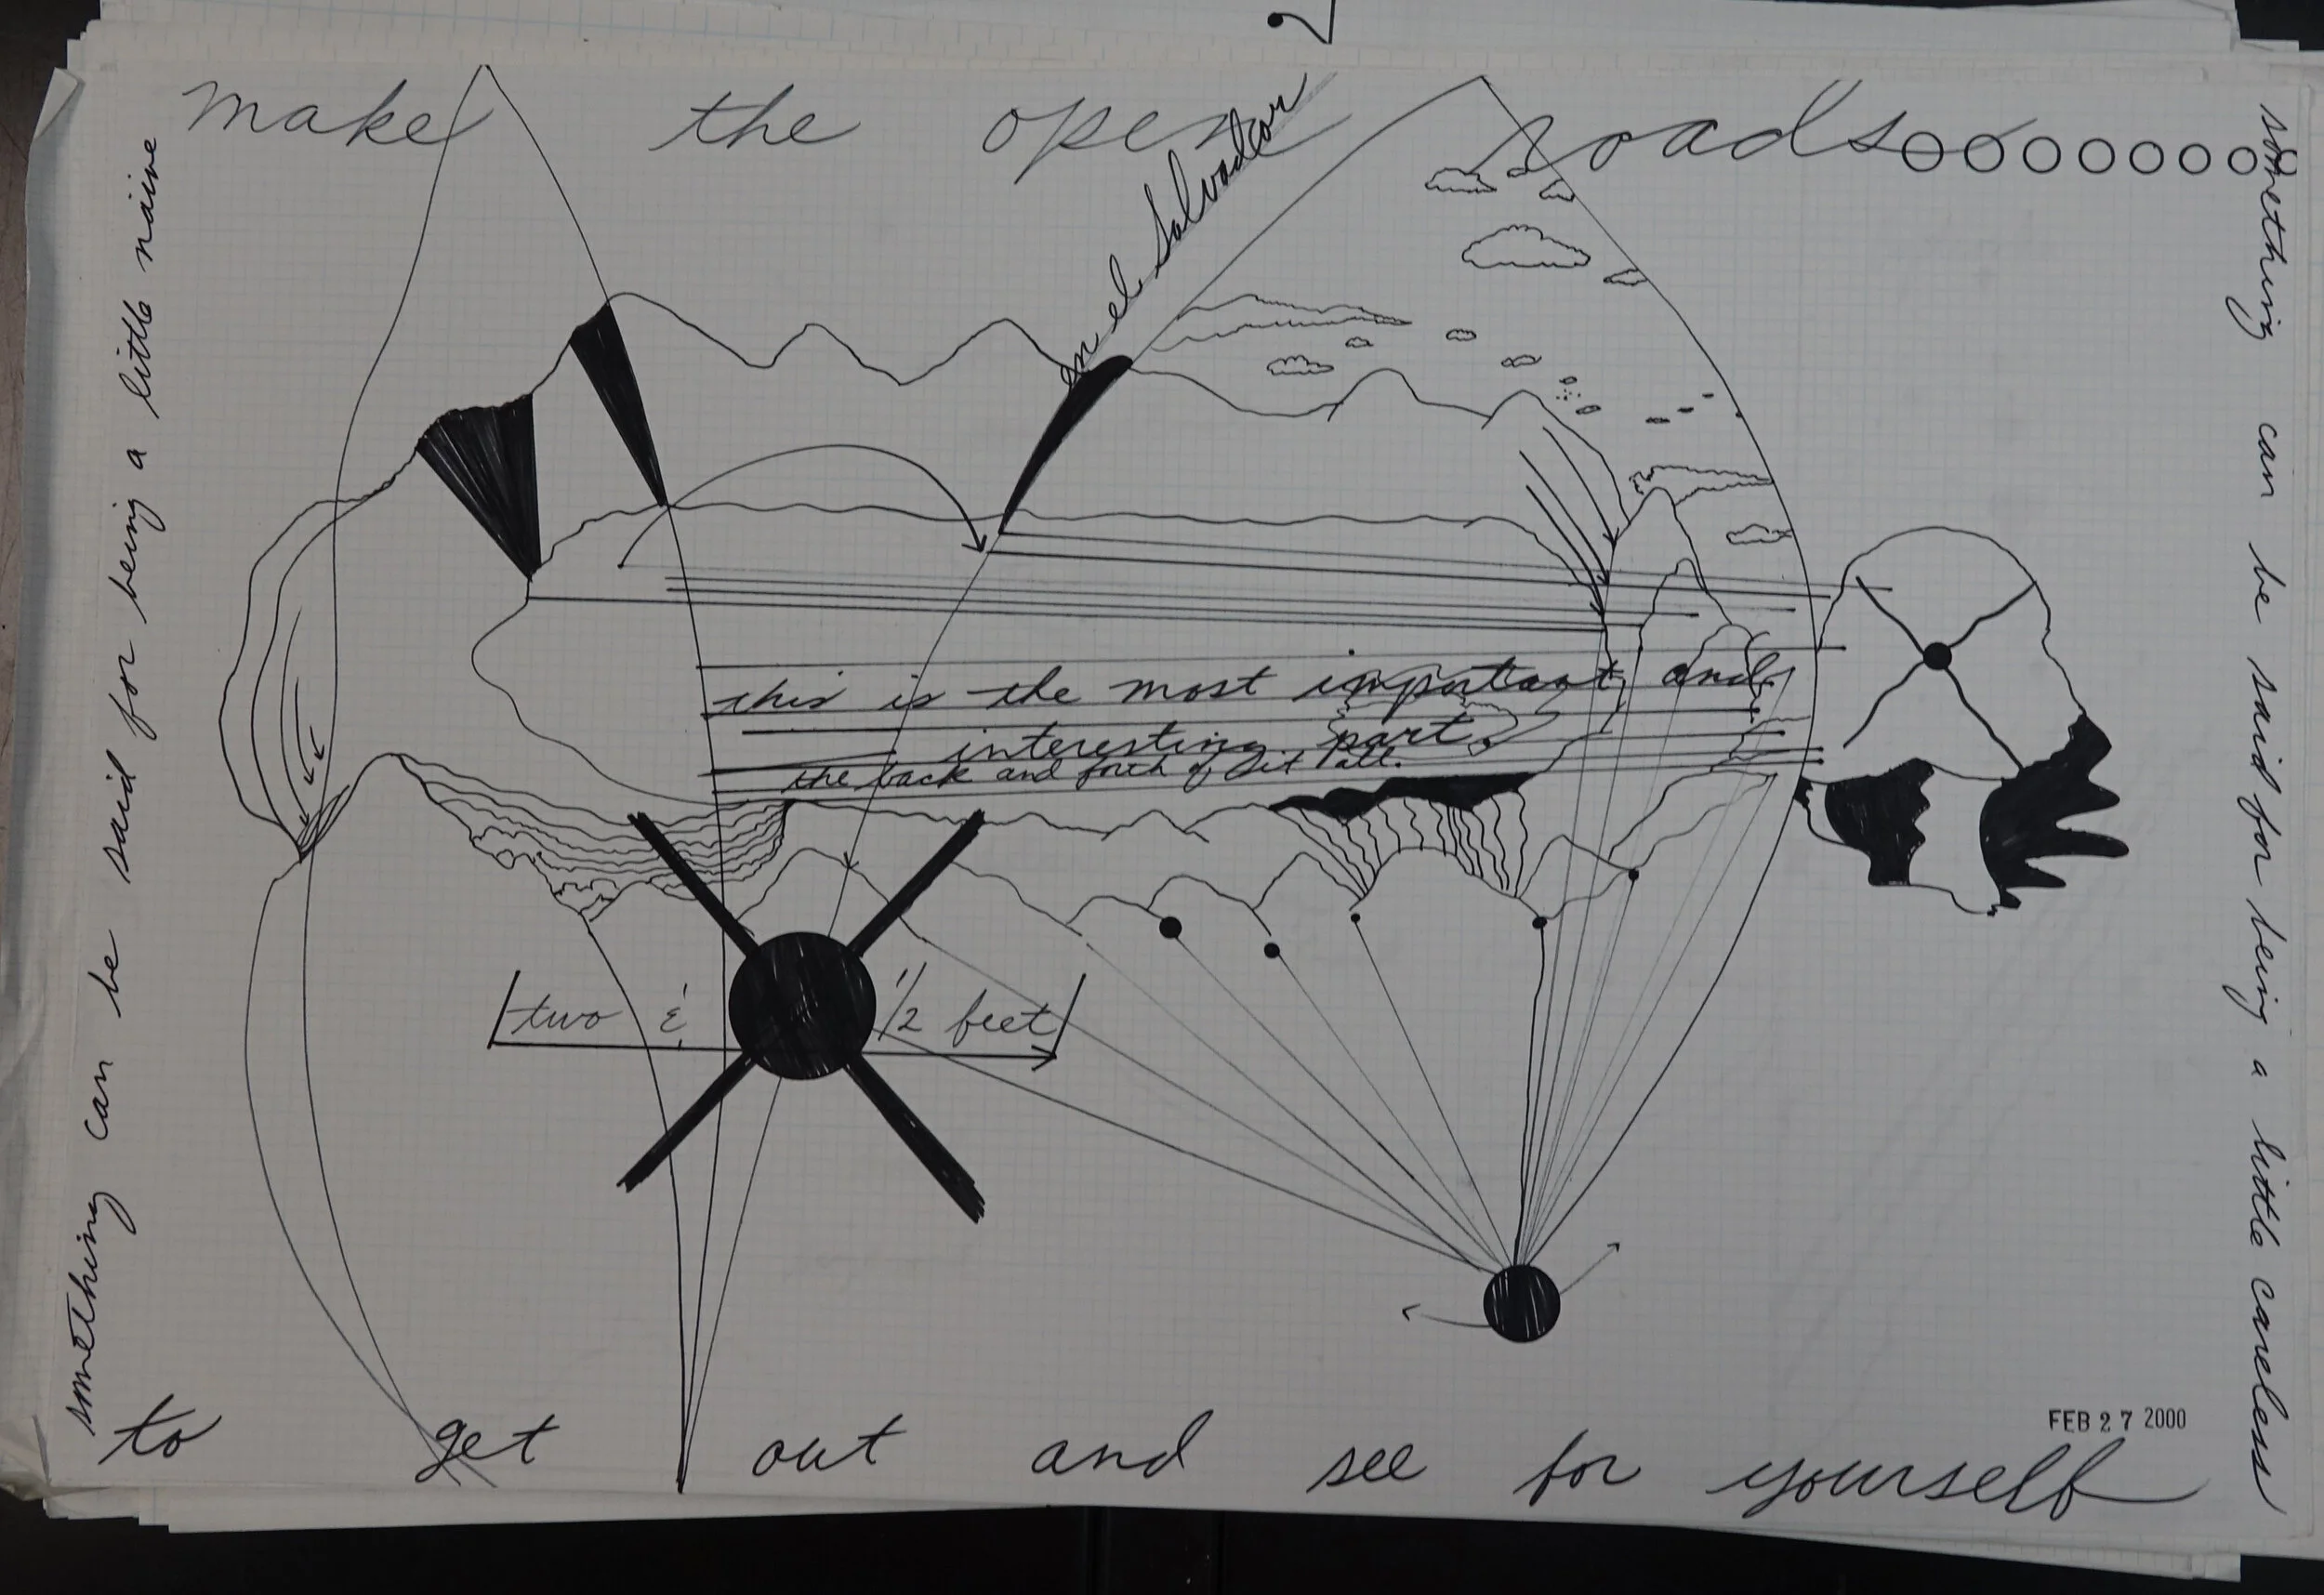 make the open roads
en el Salvador
something can be said for being a little naive
something can be said for being a little careless
this is the most important and
interesting part
the back and forth of it all.
two & 1/2 feet
FEB 27 2000
to get out and see for yourself